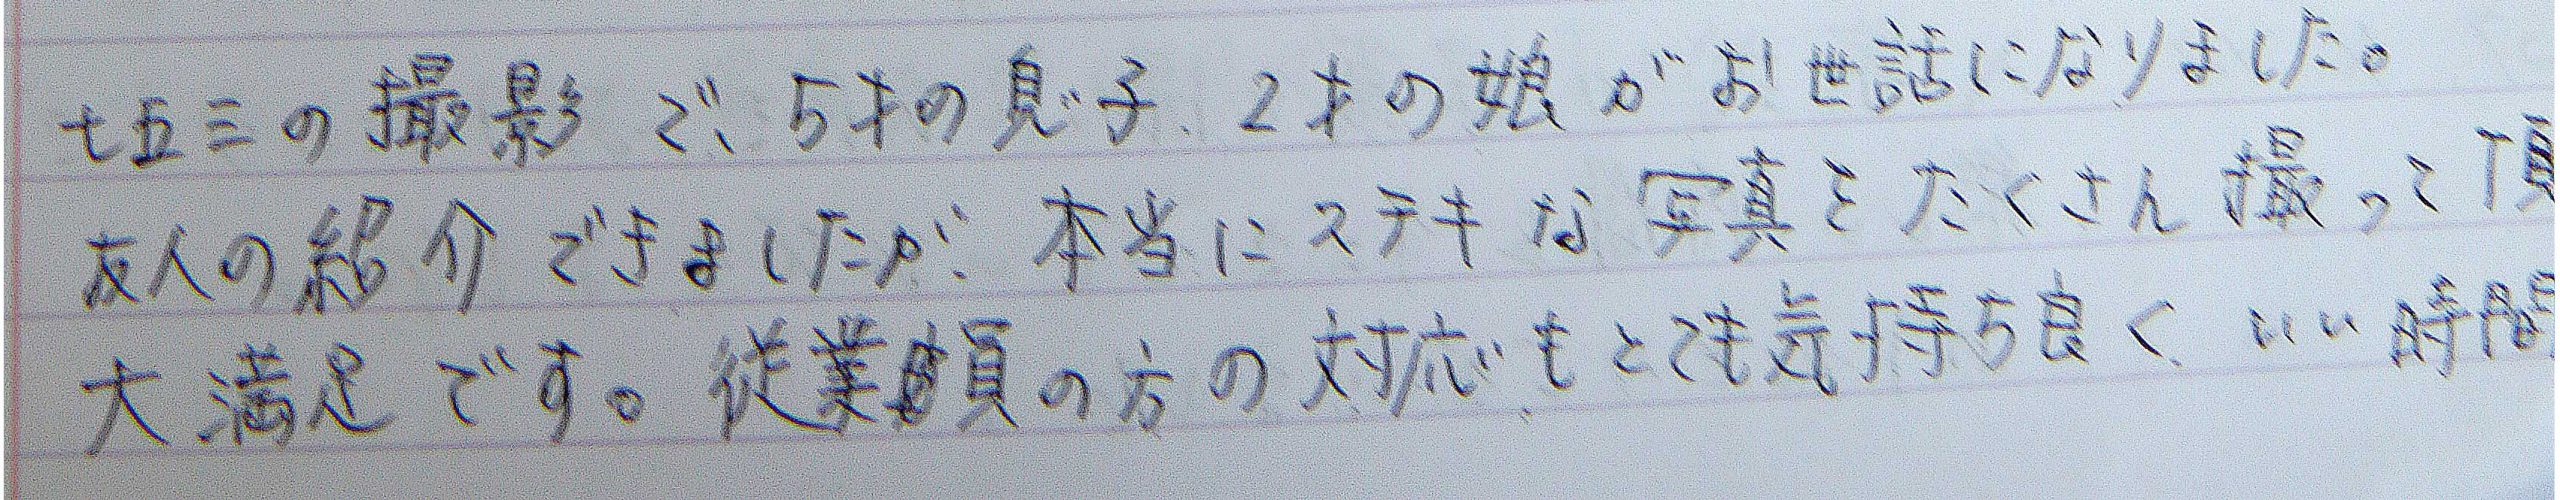 七五三の撮影で、5才の息子、2才の娘がお世話になりました。
友人の紹介できましたが、本当にステキな写真をたくさん撮って頂
大満足です。従業員の方の対応もとても気持ち良く、いい時間